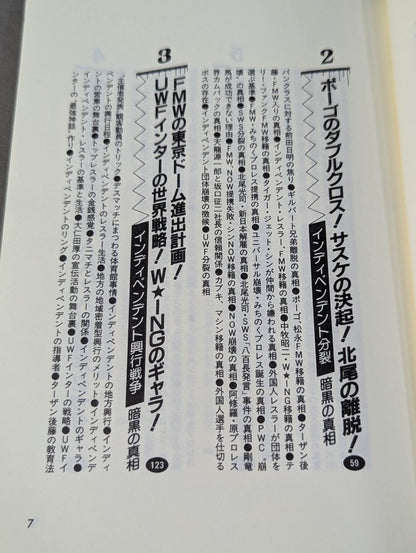 2
ポーゴのダブルクロス！サスケの決起！北尾の離脱！
インディペンデント分裂 暗黒の真相
59
パンクラスに対する前田日明の焦り●ギルバート兄弟離脱の真相●ポーゴ、松永FMW移籍の真相●ターザン後
藤・FMW入りの真相●インディペンデント・レスラー、FMW移籍の真相●中牧昭二・W★ING移籍の真相●テ
リー・ファンクFMW移籍の真相●タイガー・ジェット・シンが仲間から嫌われる真相●外国人レスラーが団体を
選ぶ基準●FMW・みちのくプロレス提携の真相●ユニバーサル崩壊・みちのくプロレス誕生の真相●PWC、崩
壊の真相●SWS分裂の真相●北尾光司・新日本解雇の真相●北尾光司・SWS「八百長発言」事件の真相●剛竜
馬が成功できない理由●FMW、NOW提携失敗・シンNOW移籍の真相●NOW崩壊の真相●阿修羅・原プロレス
界カムバックの真相●天龍源一郎と坂口征二社長の信頼関係●カブキ、マシン移籍の真相●外国人選手を仕切る
ボスの存在●インディペンデント団体崩壊の徴候●UWF分裂の真相
3
FMWの東京ドーム進出計画！
UWFインターの世界戦略！W★INGのギャラ！
インディペンデント興行戦争 暗黒の真相
123
"主催者発表"観客動員のトリック●デスマッチにまつわる体育館事情●インディペンデントの地方興行●インディ
ペンデントの興行日程●インディペンデントのレスラー生活●地方の地域密着型興行のメリット●インディペンデ
ントの営業の舞台裏●トップレスラーの金銭感覚●タニマチとレスラーの関係●インディペンデントのギャラ●
インディペンデント・レスラーの基準と生活●大仁田厚の宣伝活動の舞台裏●UWFインターの戦略●UWFイ
ンターの"最強神話"作り●インディペンデントのリング●インディペンデントの指導者●ターザン後藤の教育法
7